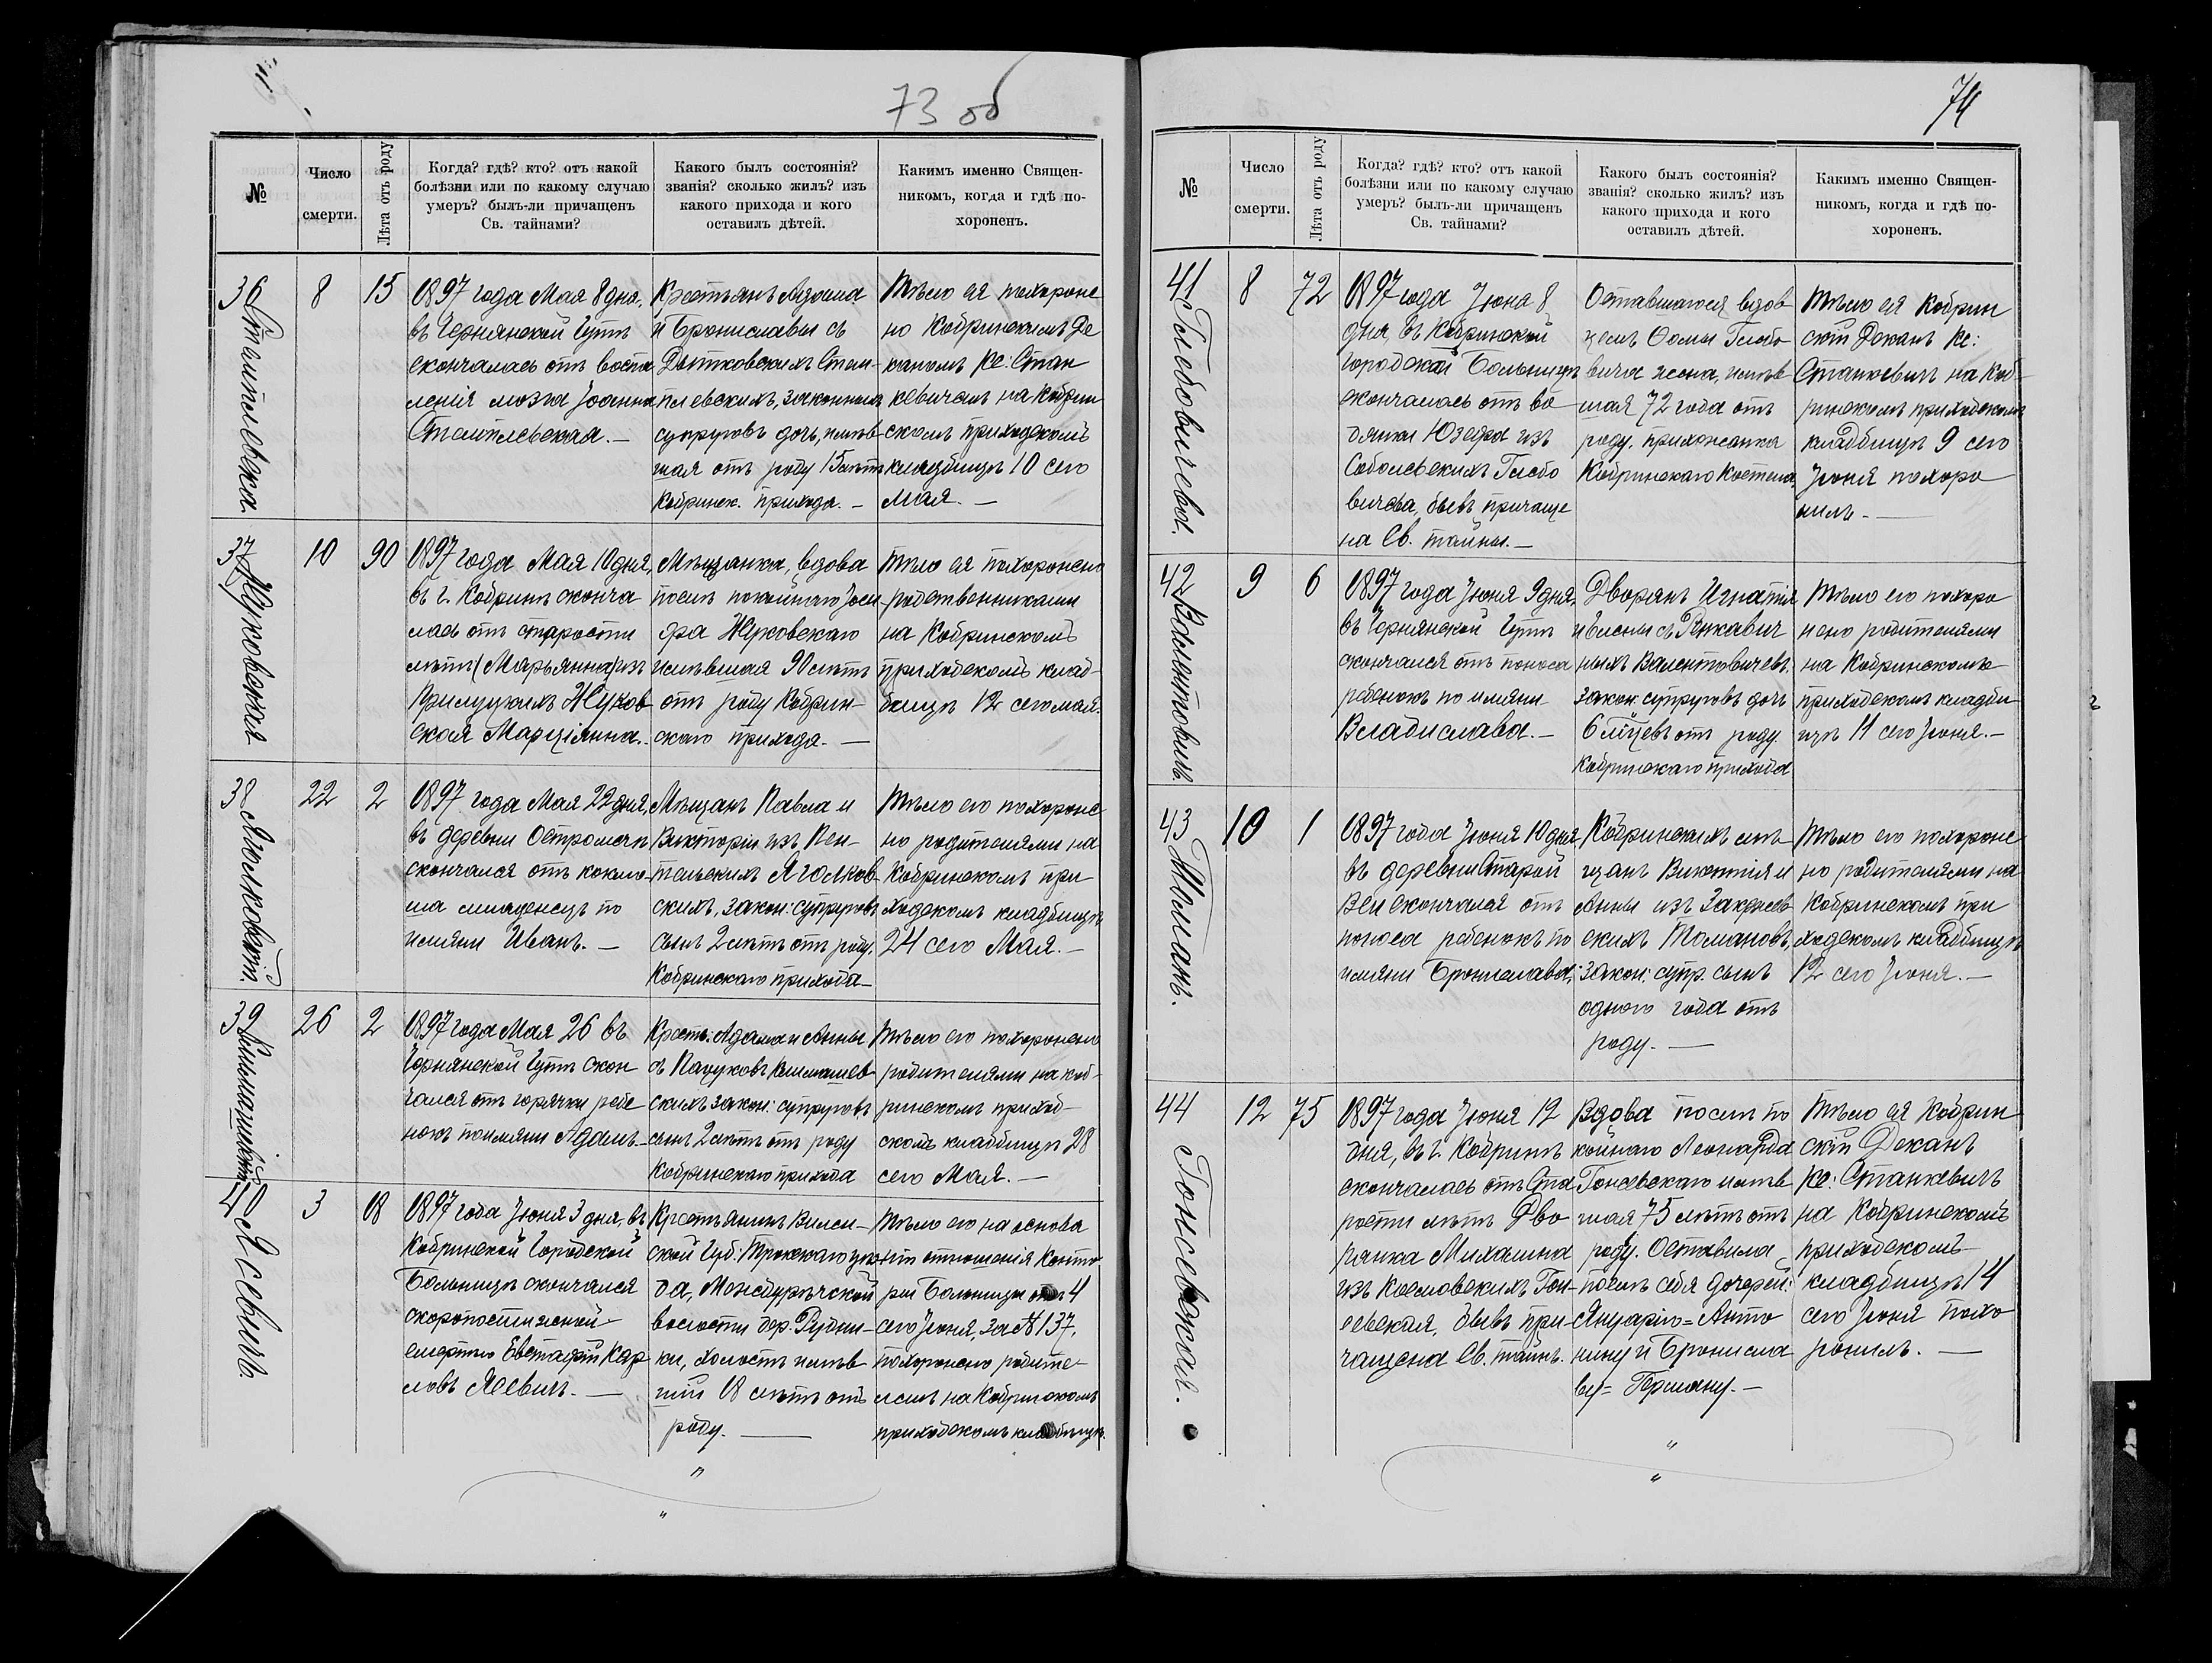 73 об
№
Число
смерти.
Лѣта отъ роду
Когда? гдѣ? кто? отъ какой
болѣзни или по какому случаю
умеръ? былъ-ли причащенъ
Св. тайнами?
Какого былъ состоянія?
званія? сколько жилъ? изъ
какого прихода и кого
оставилъ дѣтей.
Какимъ именно Священ-
никомъ, когда и гдѣ по-
хороненъ.
36
8
15
1897 года Мая 8 дня,
въ Чернянской Гутѣ
скончалась отъ воспа
ленія мозга Іоанна
Стемплевская.—
Крестьянъ Адама
и Брониславы съ
Дытковскихъ Стем-
плевскихъ, законныхъ
супруговъ дочь, имѣв-
шая отъ роду 15 лѣтъ
Кобринск. прихода.—
Тѣло ея похороне
но Кобринскимъ Де
каномъ Кс: Стан
кевичемъ на Кобрин
скомъ приходскомъ
кладбищѣ 10 сего
мая.—
37 Жуковская
10
90
1897 года Мая 10 дня,
въ г. Кобринѣ сконча
лась отъ старости
лѣтъ (Марьянна) изъ
Прилуцкихъ Жуков
ская Марціянна.
Мѣщанка, вдова
послѣ покойнаго Іоси
фа Жуковскаго
имѣвшая 90 лѣтъ
отъ роду Кобрин-
скаго прихода.—
Тѣло ея похоронено
родственниками
на Кобринскомъ
приходскомъ клад-
бищѣ 12 сего мая.
38
22
2
1897 года Мая 22 дня,
въ деревни Остромечи
скончался отъ коклю-
ша младенецъ по
имяни Иванъ.—
Мѣщанъ Павла и
Викторіи изъ Пен-
тельскихъ Яголков
скихъ, закон: супруговъ
сынъ 2 лѣтъ отъ роду.
Кобринскаго прихода—
Тѣло его похороне
но родителями на
Кобринскомъ при
ходскомъ кладбищѣ
24 сего Мая.—
39
26
2
1897 года Мая 26 въ
Чернянской Гутѣ скон
чался отъ горячки ребе
нокъ по имяни Адамъ.—
Крест: Адама и Анны
съ Пацуковъ Климашев
скихъ закон: супруговъ
сынъ 2 лѣтъ отъ роду
Кобринскаго прихода
Тѣло его похоронено
родителями на коб-
ринскомъ приход-
скомъ кладбищѣ 28
сего Мая.—
40 Ясевичъ.
3
18
1897 года Іюня 3 дня, въ
Кобринской Городской
Больницѣ скончался
скоропостижной
смертью Евстафій Кар
ловъ Ясевичъ.—
Крестьянинъ Вилен-
ской Губ: Трокскаго уѣз-
да, Междурѣчской
волости дер. Рудни-
ки, холостъ имѣв
шій 18 лѣтъ отъ
роду.—
Тѣло его на основа
ніи отношенія Конто
ры Больницы отъ 4
сего Іюня, за № 137,
похоронено родите-
лемъ на Кобринскомъ
приходскомъ кладбищѣ.
74
№
Число
смерти.
Лѣта отъ роду
Когда? гдѣ? кто? отъ какой
болѣзни или по какому случаю
умеръ? былъ-ли причащенъ
Св. тайнами?
Какого былъ состоянія?
званія? сколько жилъ? изъ
какого прихода и кого
оставилъ дѣтей.
Какимъ именно Священ-
никомъ, когда и гдѣ по-
хороненъ.
41 Глебовичева.
8
72
1897 года Іюня 8
дня, въ Кобринской
городской Больницѣ
скончалась отъ во
дянки Юзефа изъ
Соболевскихъ Глебо
вичева, бывъ причаще
на Св. тайны.—
Оставшагося вдов
цемъ Фомы Глебо
вича жена, имѣв
шая 72 года отъ
роду. прихожанка
Кобринскаго Костела.
Тѣло ея Кобрин
скій Деканъ Кс:
Станкевичъ на Коб-
ринскомъ приходскомъ
кладбищѣ 9 сего
Іюня похоро
нилъ.—
42
9
6
1897 года Іюня 9 дня,
въ Чернянской Гутѣ
скончался отъ поноса
ребенокъ по имяни
Владислава.—
Дворянъ Игнатія
и Елены съ Ренкавич
ныхъ Валентовичевъ
закон. супруговъ дочь
6 м‑цевъ отъ роду
Кобринскаго прихода
Тѣло его похоро
нено родителями
на Кобринскомъ
приходскомъ кладби
щѣ 11 сего Іюня.—
43 Томанъ.
10
1
1897 года Іюня 10 дня
въ деревни Старой
Вси скончался отъ
поноса ребенокъ по
имяни Бронислава;
Кобринскихъ мѣ-
щанъ Викентія и
Анны изъ Закржев
скихъ Томановъ,
закон: супр. сынъ
одного года отъ
роду.—
Тѣло его похороне
но родителями на
Кобринскомъ при
ходскомъ кладбищѣ
12 сего Іюня.—
44 Гонсевская.
12
75
1897 года Іюня 12
дня, въ г. Кобринѣ
скончалась отъ Ста
рости лѣтъ Дво
рянка Михалина
изъ Козловскихъ Гон-
севская, бывъ при-
чащена Св. тайнъ.
Вдова послѣ по
койнаго Леонарда
Гонсевскаго имѣв
шая 75 лѣтъ отъ
роду. Оставила
послѣ себя дочерей:
Януарію=Анто
нину и Бронисла
ву=Герману.—
Тѣло ея Кобрин
скій Деканъ
Кс: Станкевичъ
на Кобринскомъ
приходскомъ
кладбищѣ 14
сего Іюня похо
ронилъ.—